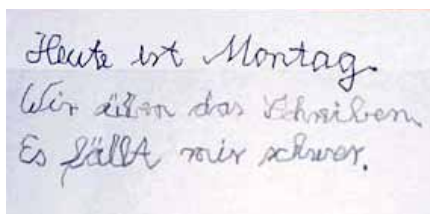 Heute ist Montag.
Wir üben das Schreiben.
Es fällt mir schwer.